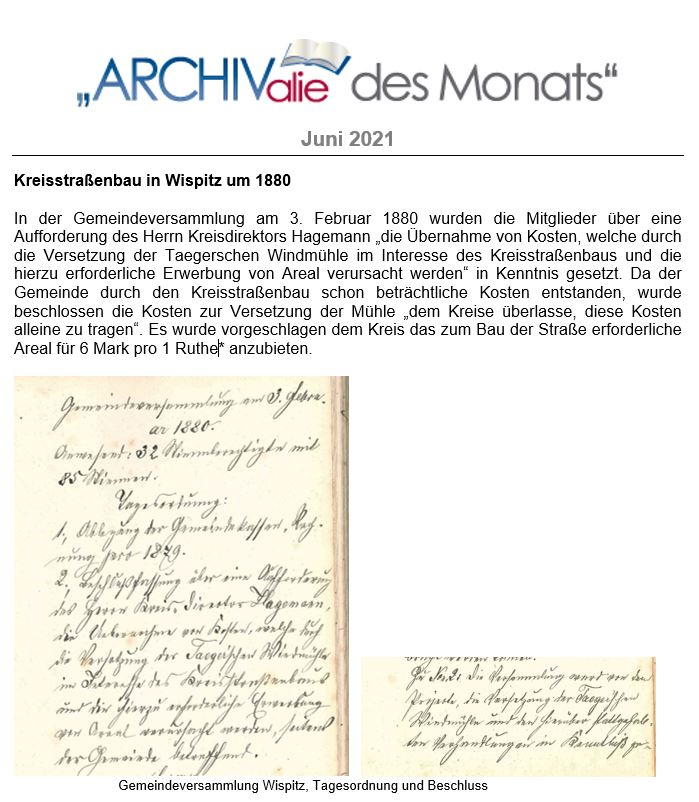 „ARCHIValie des Monats“
Juni 2021
Kreisstraßenbau in Wispitz um 1880
In der Gemeindeversammlung am 3. Februar 1880 wurden die Mitglieder über eine
Aufforderung des Herrn Kreisdirektors Hagemann „die Übernahme von Kosten, welche durch
die Versetzung der Taegerschen Windmühle im Interesse des Kreisstraßenbaus und die
hierzu erforderliche Erwerbung von Areal verursacht werden“ in Kenntnis gesetzt. Da der
Gemeinde durch den Kreisstraßenbau schon beträchtliche Kosten entstanden, wurde
beschlossen die Kosten zur Versetzung der Mühle „dem Kreise überlasse, diese Kosten
alleine zu tragen“. Es wurde vorgeschlagen dem Kreis das zum Bau der Straße erforderliche
Areal für 6 Mark pro 1 Ruthe* anzubieten.
Gemeindeversammlung am 3. Febru-
ar 1880.
Anwesend: 32 Stimmberechtigte mit
85 Stimmen.
Tagesordnung:
1, Ablegung der Gemeindekassen, Rech-
nung pro 1879.
2, Beschlußfassung über eine Aufforderung
des Herrn Kreis, Director Hagemann,
die Uebernahme von Kosten, welche durch
die Versetzung der Taegerschen Windmühle
im Interesse des Kreisstraßenbaus
und die hierzu erforderliche Erwerbung
von Areal verursacht werden, seitens
der Gemeinde betreffend.
Zu No. 2: Die Versammlung ward von dem
Projecte, die Versetzung der Taegerschen
Windmühle und den hierüber stattgehab-
ten Verhandlungen in Kenntniß ge-
Gemeindeversammlung Wispitz, Tagesordnung und Beschluss